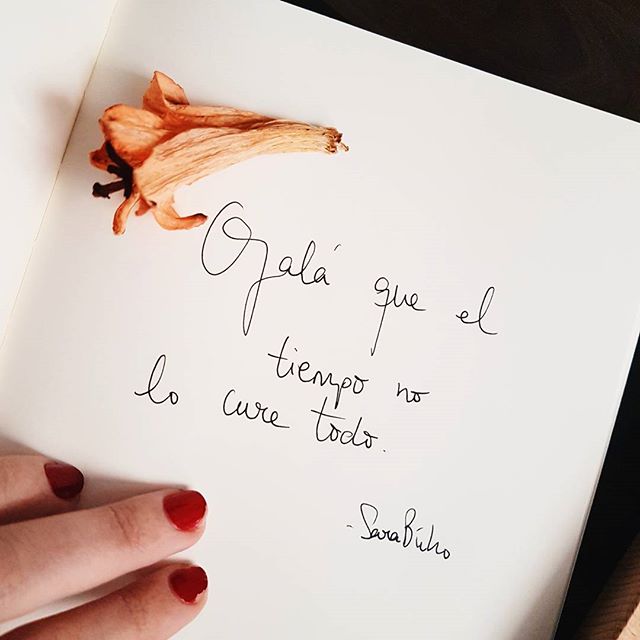 Ojalá que el
tiempo no
lo cure todo.
- Sara Búho